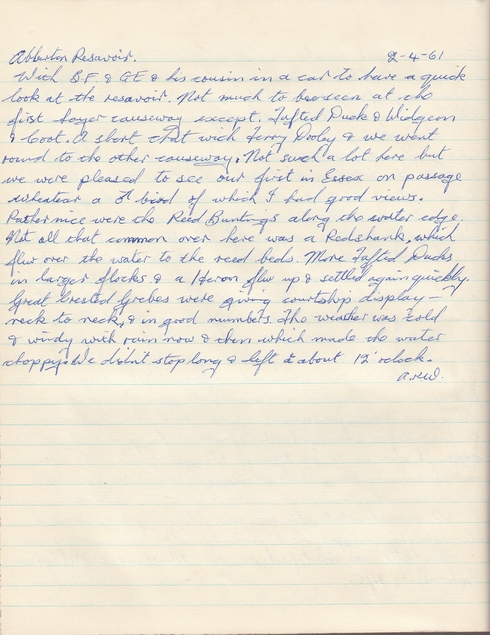 Abberton Resavoir. 2-4-61
With B.F & G.E & his cousin in a car to have a quick
look at the resavoir. Not much to be seen at the
first larger causeway except. Tufted Duck & Widgeon
& Coot. A short chat with Terry Dooley & we went
round to the other causeway. Not such a lot here but
we were pleased to see our first in Essex on passage
wheatear a ♂ bird of which I had good views.
Rather nice were the Reed Buntings along the water edge
Not all that common over here was a Redshank, which
flew over the water to the reed beds. More Tufted Ducks
in larger flocks & a Heron flew up & settled again quickly.
Great Crested Grebes were giving courtship display —
neck to neck, & in good numbers. The weather was cold
& windy with rain now & then which made the water
choppy. We didn't stop long & left at about 12 o'clock.